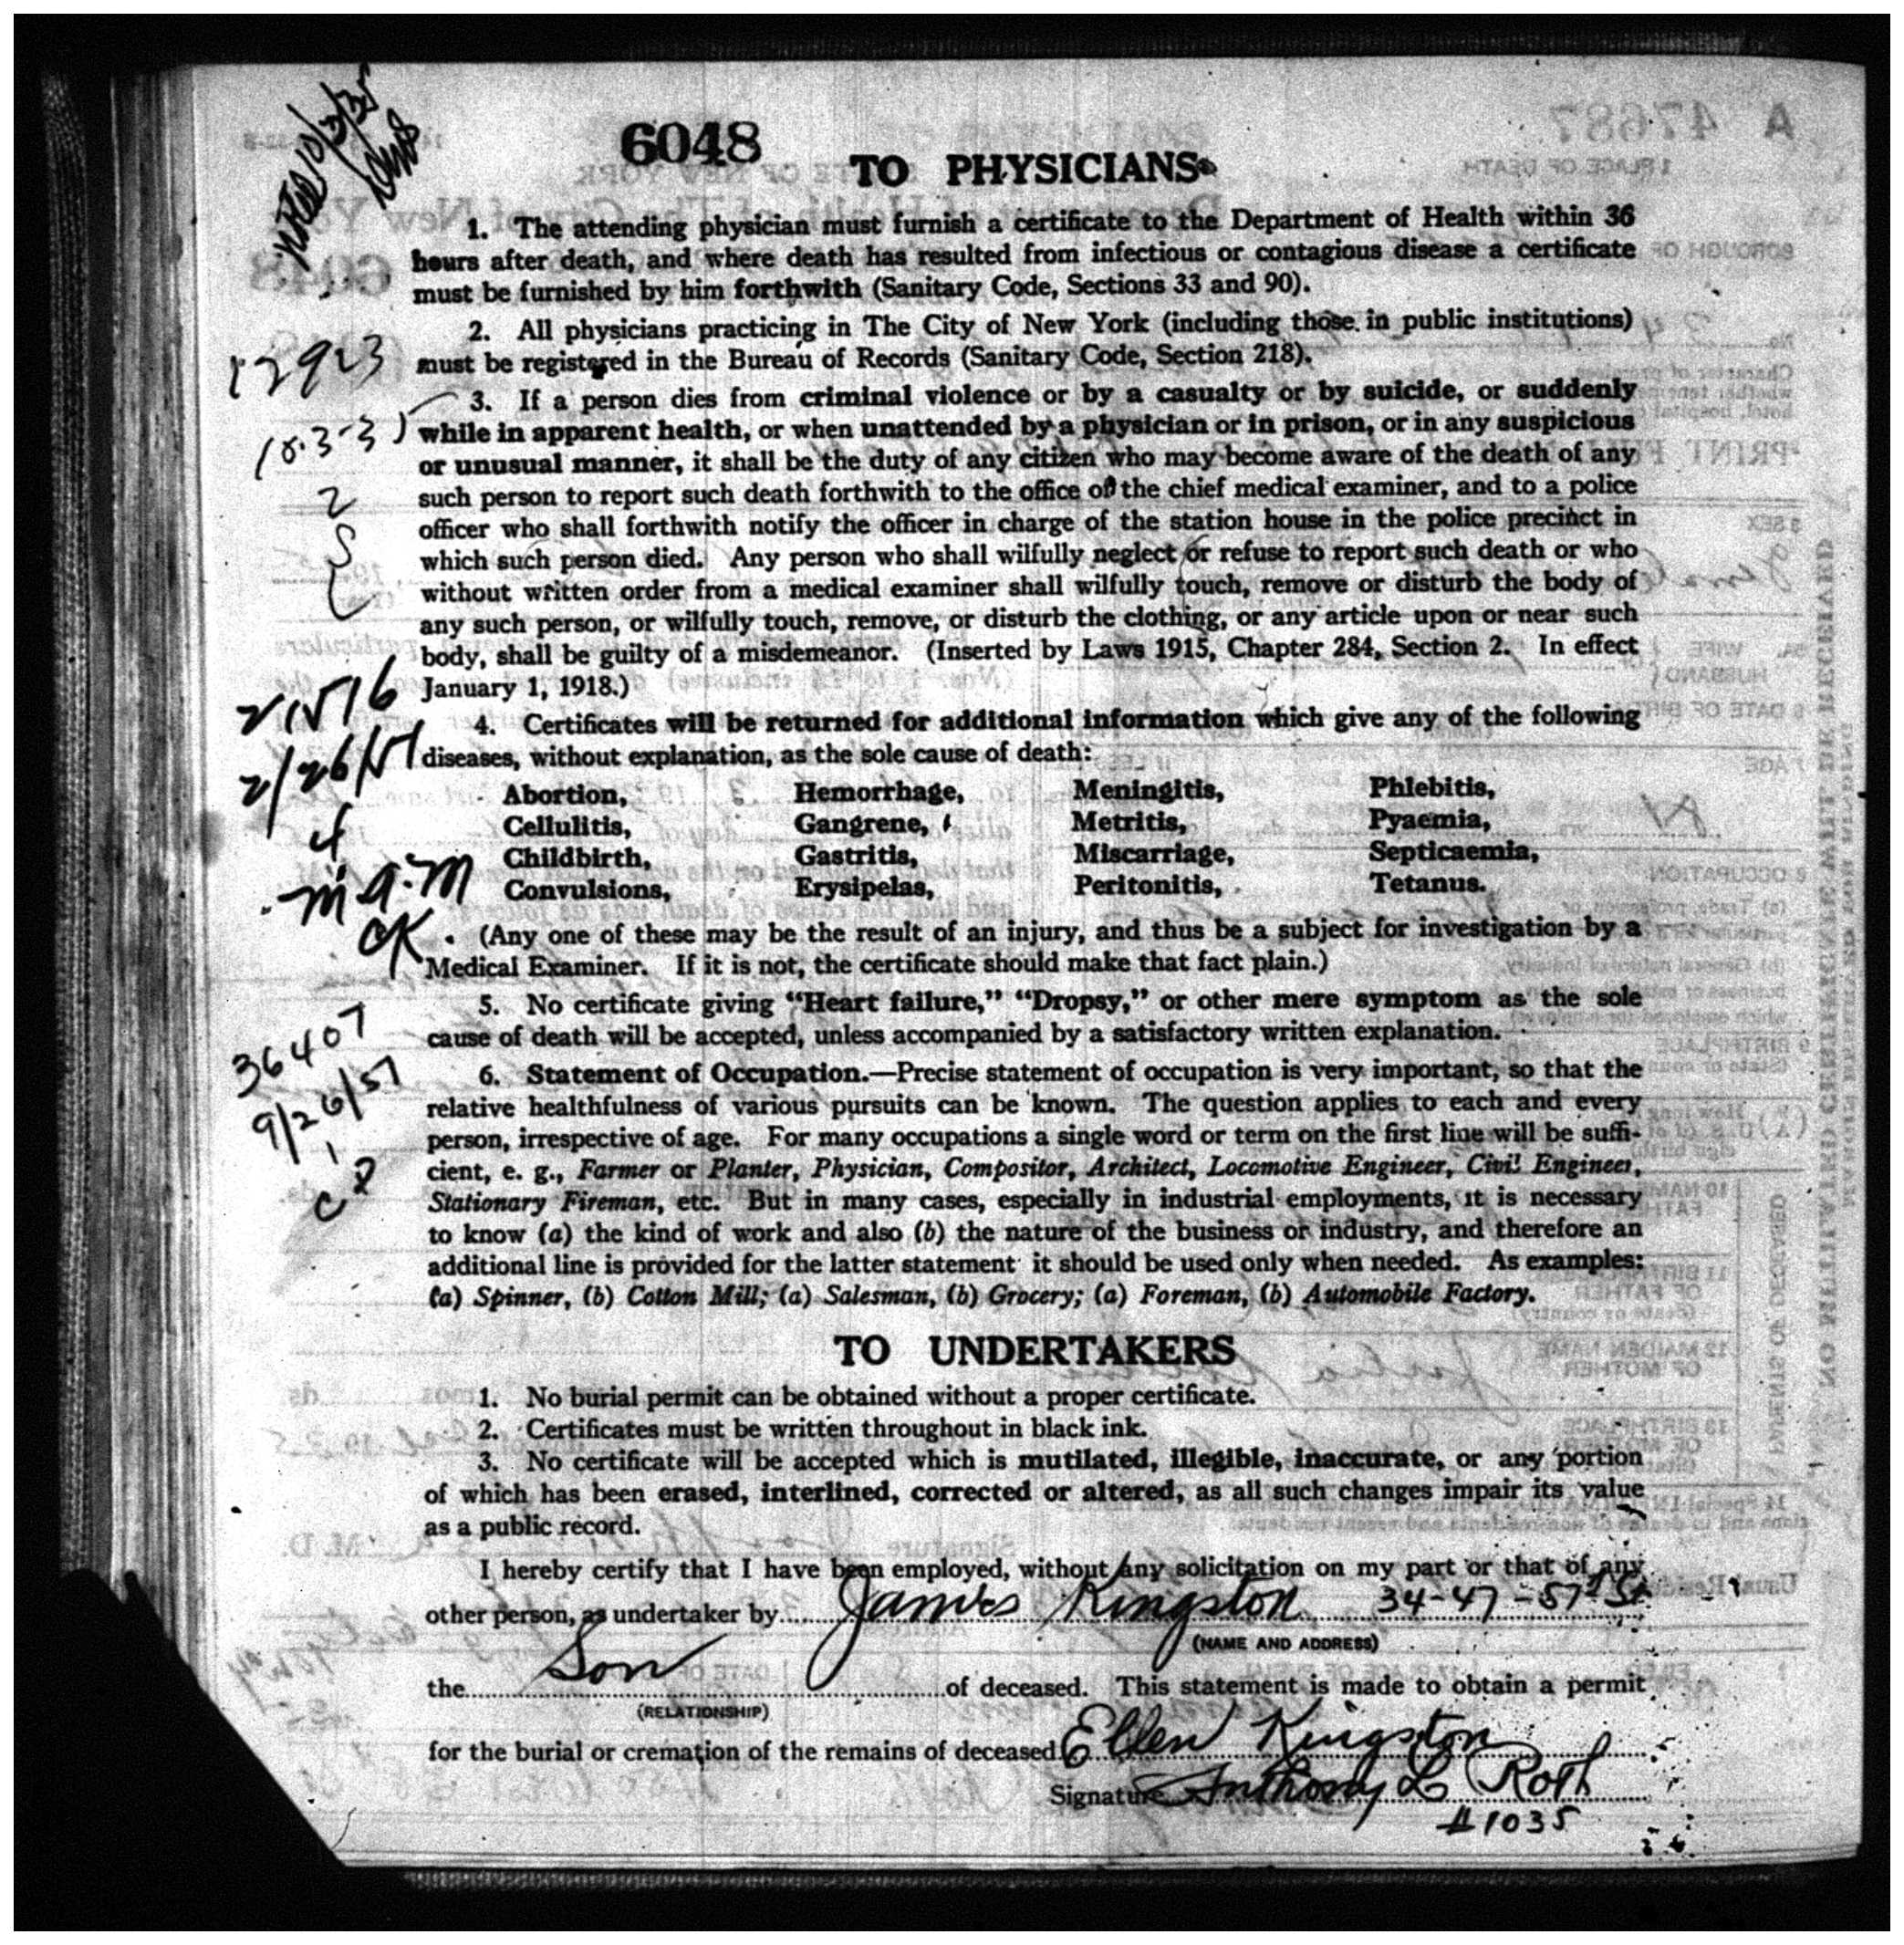 6048
TO PHYSICIANS
1. The attending physician must furnish a certificate to the Department of Health within 36
hours after death, and where death has resulted from infectious or contagious disease a certificate
must be furnished by him forthwith (Sanitary Code, Sections 33 and 90).
2. All physicians practicing in The City of New York (including those in public institutions)
must be registered in the Bureau of Records (Sanitary Code, Section 218).
12923
3. If a person dies from criminal violence or by a casualty or by suicide, or suddenly
while in apparent health, or when unattended by a physician or in prison, or in any suspicious
or unusual manner, it shall be the duty of any citizen who may become aware of the death of any
such person to report such death forthwith to the office of the chief medical examiner, and to a police
officer who shall forthwith notify the officer in charge of the station house in the police precinct in
which such person died. Any person who shall wilfully neglect or refuse to report such death or who
without written order from a medical examiner shall wilfully touch, remove or disturb the body of
any such person, or wilfully touch, remove, or disturb the clothing, or any article upon or near such
body, shall be guilty of a misdemeanor. (Inserted by Laws 1915, Chapter 284, Section 2. In effect
January 1, 1918.)
4. Certificates will be returned for additional information which give any of the following
diseases, without explanation, as the sole cause of death:
Abortion, Hemorrhage, Meningitis, Phlebitis,
Cellulitis, Gangrene, Metritis, Pyaemia,
Childbirth, Gastritis, Miscarriage, Septicaemia,
Convulsions, Erysipelas, Peritonitis, Tetanus.
(Any one of these may be the result of an injury, and thus be a subject for investigation by a
Medical Examiner. If it is not, the certificate should make that fact plain.)
5. No certificate giving "Heart failure," "Dropsy," or other mere symptom as the sole
cause of death will be accepted, unless accompanied by a satisfactory written explanation.
36407
9/26/57
6. Statement of Occupation.—Precise statement of occupation is very important, so that the
relative healthfulness of various pursuits can be known. The question applies to each and every
person, irrespective of age. For many occupations a single word or term on the first line will be suffi-
cient, e. g., Farmer or Planter, Physician, Compositor, Architect, Locomotive Engineer, Civil Engineer,
Stationary Fireman, etc. But in many cases, especially in industrial employments, it is necessary
to know (a) the kind of work and also (b) the nature of the business or industry, and therefore an
additional line is provided for the latter statement it should be used only when needed. As examples:
(a) Spinner, (b) Cotton Mill; (a) Salesman, (b) Grocery; (a) Foreman, (b) Automobile Factory.
TO UNDERTAKERS
1. No burial permit can be obtained without a proper certificate.
2. Certificates must be written throughout in black ink.
3. No certificate will be accepted which is mutilated, illegible, inaccurate, or any portion
of which has been erased, interlined, corrected or altered, as all such changes impair its value
as a public record.
I hereby certify that I have been employed, without any solicitation on my part or that of any
other person, as undertaker by James Kingston 34-47-57th St
(NAME AND ADDRESS)
the Son of deceased. This statement is made to obtain a permit
(RELATIONSHIP)
for the burial or cremation of the remains of deceased Ellen Kingston
Signature Anthony L Roth
#1035